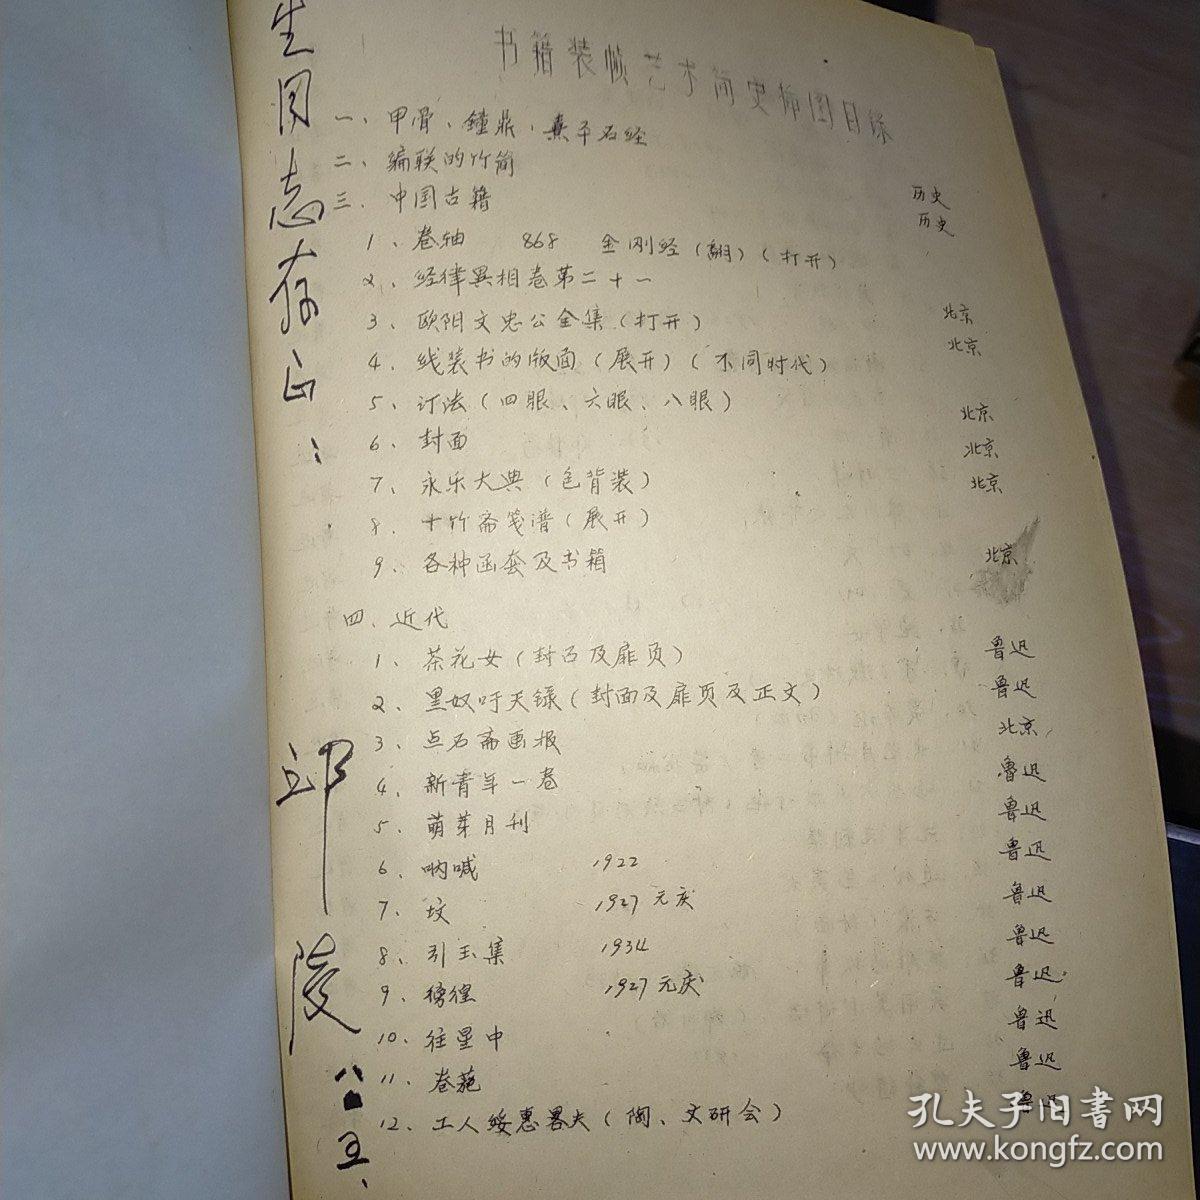 书籍装帧艺术简史插图目录
一、甲骨、鐘鼎、熹平石经
二、编联的竹简
三、中国古籍
历史
历史
1、卷轴 868 金刚经(翻)(打开)
2、经律異相卷第二十一
3、欧阳文忠公全集(打开) 北京
4、线装书的版面(展开)(不同时代) 北京
5、订法(四眼、六眼、八眼)
6、封面 北京
7、永乐大典(包背装) 北京
8、十竹斋笺谱(展开) 北京
9、各种函套及书箱 北京
四、近代
1、茶花女(封面及扉页) 鲁迅
2、黑奴吁天録(封面及扉页及正文) 鲁迅
3、点石斋画报 北京
4、新青年一卷 鲁迅
5、萌芽月刊 鲁迅
6、呐喊 1922 鲁迅
7、坟 1927元庆 鲁迅
8、引玉集 1934 鲁迅
9、彷徨 1927元庆 鲁迅
10、往星中 鲁迅
11、卷葹 鲁迅
12、工人绥惠畧夫(陶、文研会) 鲁迅
生同志存正:
邱陵
八〇.五.
孔夫子旧书网
www.kongfz.com